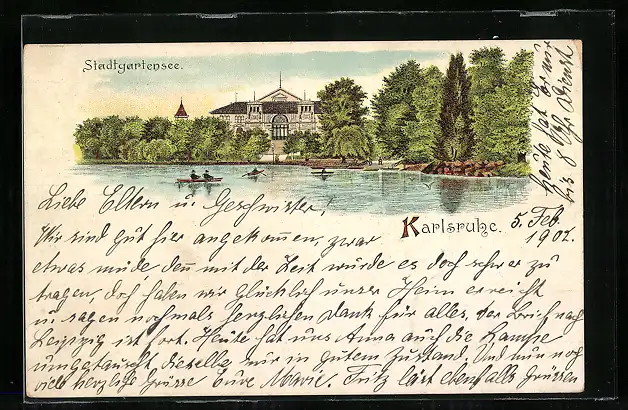 Stadtgartensee.
Karlsruhe.
5. Feb.
1901.
Liebe Eltern u. Geschwister!
Wir sind gut hier angekommen, zwar
etwas müde, denn mit der Zeit würde es doch schwer zu
tragen, doch haben wir glücklich unser Heim erreicht
u. sagen nochmals herzlichen Dank für alles, der Brief nach
Leipzig ist fort. Heute hat uns Anna auch die Lampe
umgetauscht, dieselbe in gutem Zustand. Und nun noch
viele herzliche Grüsse Eure Marie. Fritz lässt ebenfalls grüssen
Heute hat er nur
bis 8 Uhr Dienst